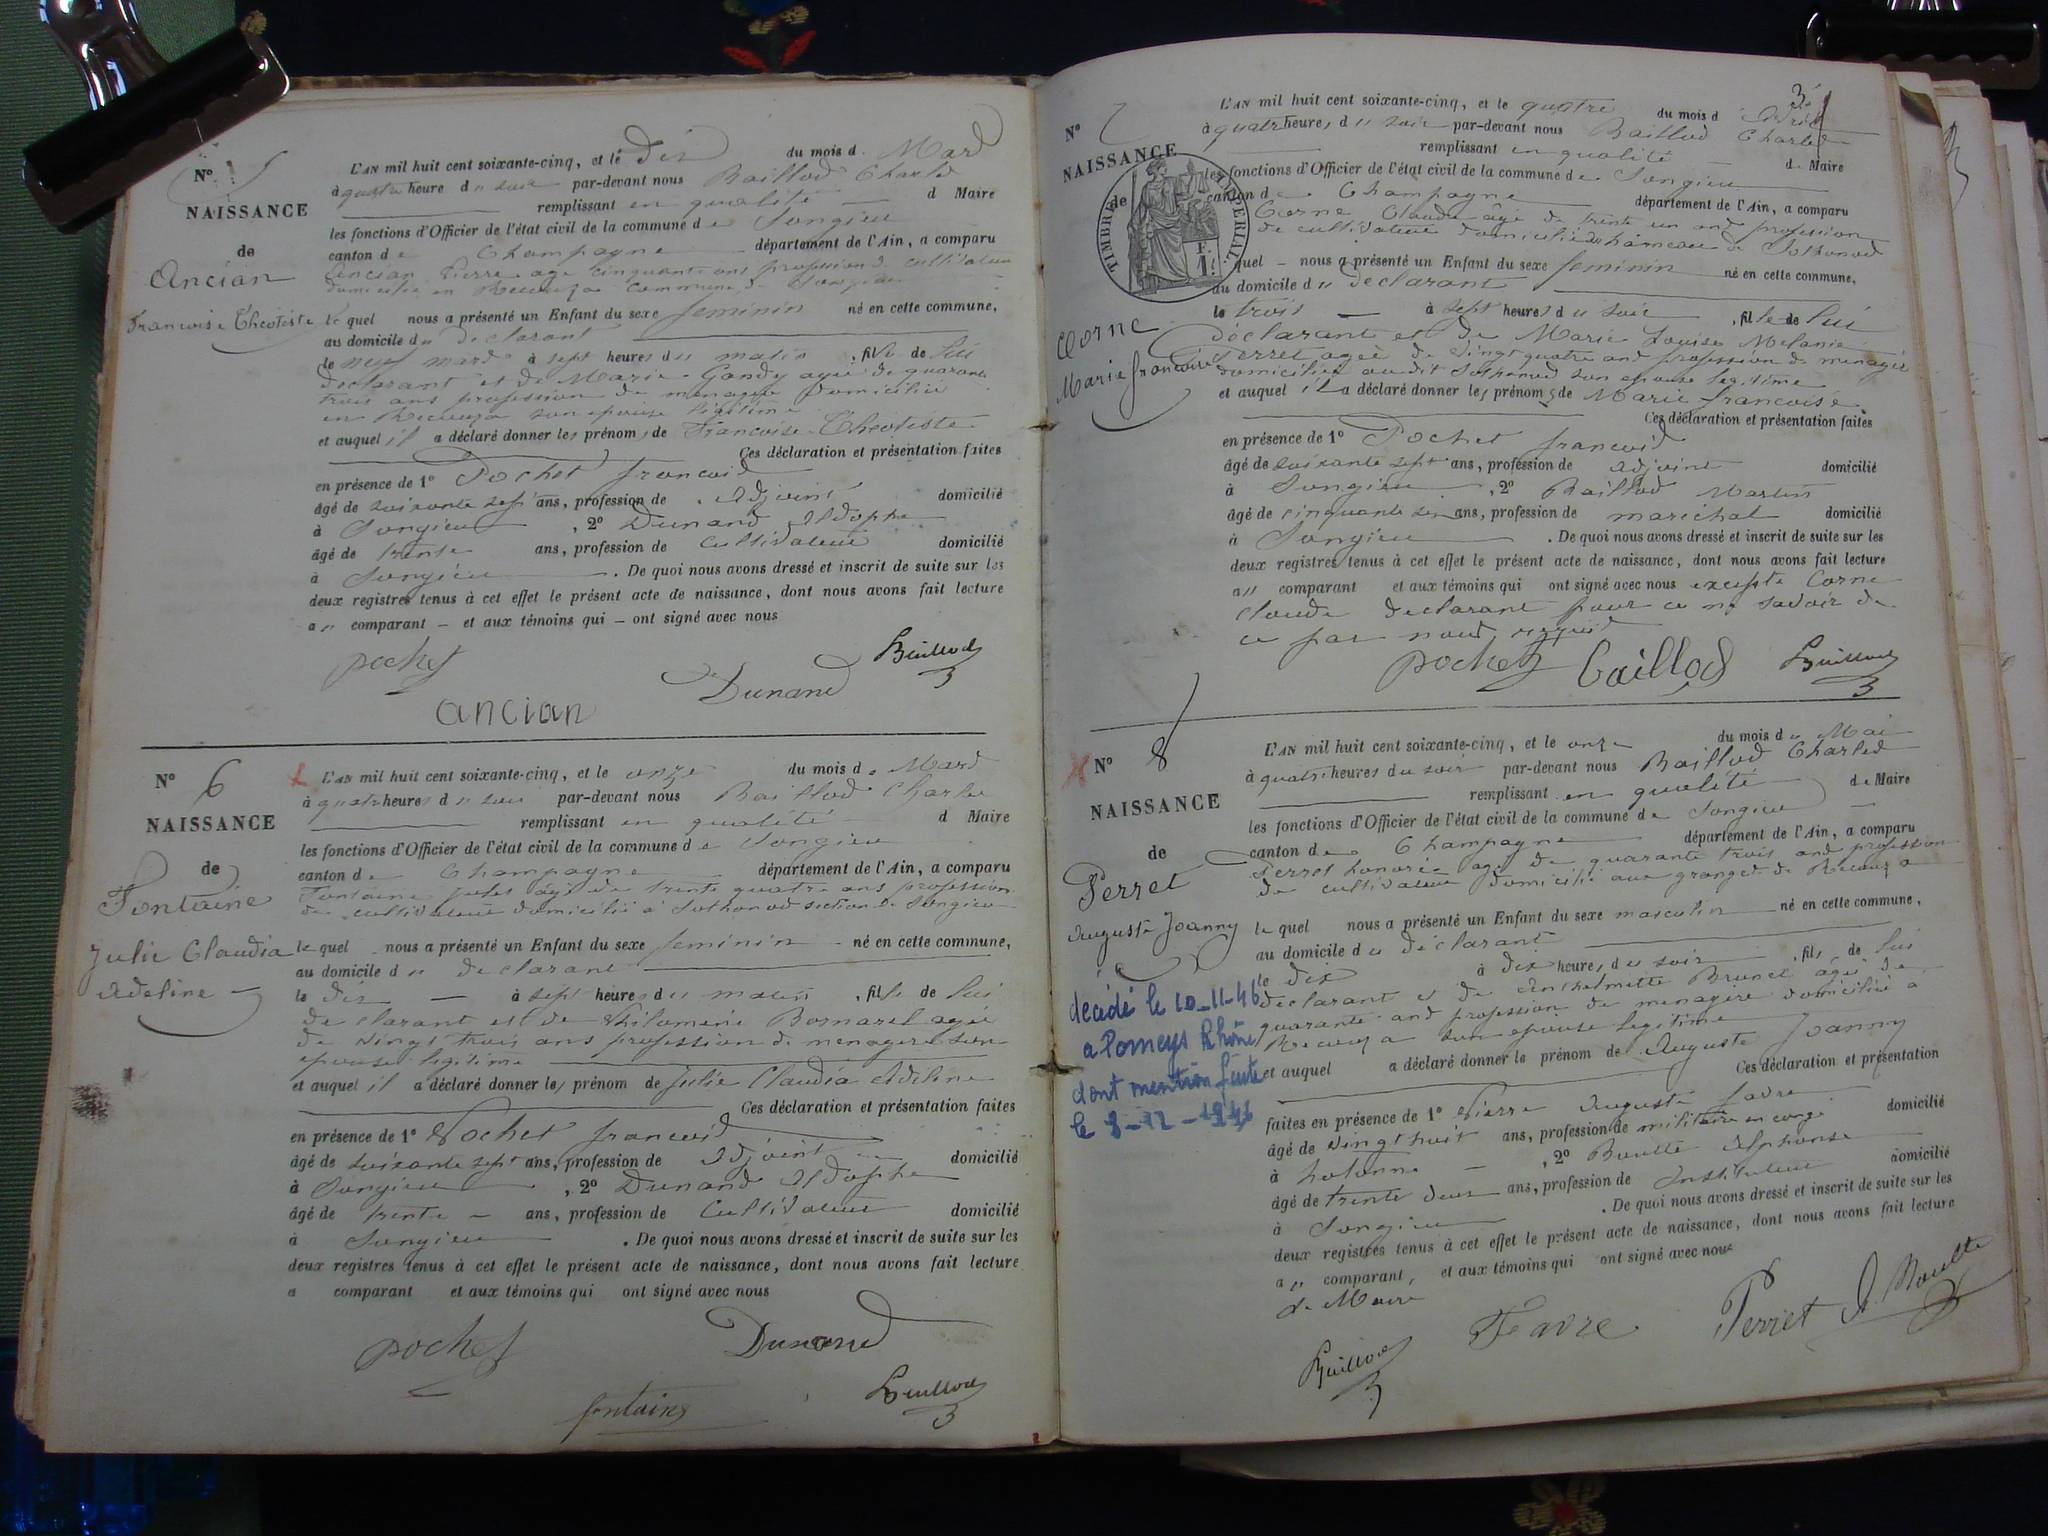 N° 5
NAISSANCE
de
Ancian
Francoise Theotiste
L'AN mil huit cent soixante-cinq, et le dix du mois d. Mars
à quatre heure d u soir par-devant nous Baillod Charles
remplissant en qualité d Maire
les fonctions d'Officier de l'état civil de la commune d e Songieu
canton d e Champagne département de l'Ain, a comparu
Ancian Pierre age cinquante ans profession de cultivateur
domicilié en Recouza commune de Songieu
le quel nous a présenté un Enfant du sexe feminin né en cette commune,
au domicile du declarant
le neuf mars à sept heures du matin , fille de lui
declarant et de Marie Gandy agée de quarante
trois ans profession de menagere domiciliée
en Recouza son epouse légitime
et auquel il a déclaré donner les prénoms de Francoise Theotiste
Ces déclaration et présentation faites
en présence de 1° Pochet francois
âgé de soixante sept ans, profession de adjoint domicilié
à Songieu , 2° Dunand Adolphe
âgé de trente ans, profession de cultivateur domicilié
à Songieu . De quoi nous avons dressé et inscrit de suite sur les
deux registres tenus à cet effet le présent acte de naissance, dont nous avons fait lecture
au comparant – et aux témoins qui – ont signé avec nous
pochet
Dunand
Baillod
ancian
N° 6
NAISSANCE
de
Fontaine
Julie Claudia
Adeline
L'AN mil huit cent soixante-cinq, et le onze du mois d e Mars
à quatre heures d u soir par-devant nous Baillod Charles
remplissant en qualité d Maire
les fonctions d'Officier de l'état civil de la commune d e Songieu
canton d e Champagne département de l'Ain, a comparu
Fontaine jules agé de trente quatre ans profession
de cultivateur domicilié à Sothonod section de Songieu
le quel nous a présenté un Enfant du sexe feminin né en cette commune,
au domicile d u declarant
le dix à sept heures du matin , fille de lui
declarant et de Philomene Bornarel agée
de vingt trois ans profession de menagere son
epouse legitime
et auquel il a déclaré donner les prénom de Julie Claudia Adeline
Ces déclaration et présentation faites
en présence de 1° Pochet francois
âgé de soixante sept ans, profession de adjoint domicilié
à Songieu , 2° Dunand Adolphe
âgé de trente ans, profession de cultivateur domicilié
à Songieu . De quoi nous avons dressé et inscrit de suite sur les
deux registres tenus à cet effet le présent acte de naissance, dont nous avons fait lecture
a comparant et aux témoins qui ont signé avec nous
pochet
Dunand
fontaine
Baillod
3
N° 7
NAISSANCE
de
TIMBRE IMPERIAL
Corne
Marie francoise
L'AN mil huit cent soixante-cinq, et le quatre du mois d Avril
à quatre heures d u soir par-devant nous Baillod Charles
remplissant en qualité de Maire
les fonctions d'Officier de l'état civil de la commune de Songieu
canton de Champagne département de l'Ain, a comparu
Corne Claude agé de trente un ans profession
de cultivateur domicilié au hameau de Sothonod
quel – nous a présenté un Enfant du sexe feminin né en cette commune,
au domicile du declarant
le trois à sept heures du soir , fille de lui
déclarant et de Marie Louise Melanie
Perret agée de vingt quatre ans profession de menagere
domiciliée audit Sothonod son epouse legitime
et auquel il a déclaré donner les prénoms de Marie francoise
Ces déclaration et présentation faites
en présence de 1° Pochet francois
âgé de soixante sept ans, profession de adjoint domicilié
à Songieu , 2° Baillod Martin
âgé de cinquante six ans, profession de marechal domicilié
à Songieu . De quoi nous avons dressé et inscrit de suite sur les
deux registres tenus à cet effet le présent acte de naissance, dont nous avons fait lecture
au comparant et aux témoins qui ont signé avec nous excepté Corne
claude declarant pour ce ne savoir de
ce par nous requis
pochet Baillod Baillod
N° 8
NAISSANCE
de
Perret
Auguste Joanny
décédé le 10-11-46
a Pomeys Rhône
dont mention faite
le 8-12-1946
L'AN mil huit cent soixante-cinq, et le onze du mois de Mai
à quatre heures du soir par-devant nous Baillod Charles
remplissant en qualité de Maire
les fonctions d'Officier de l'état civil de la commune de Songieu
canton de Champagne département de l'Ain, a comparu
Perret honoré agé de quarante trois ans profession
de cultivateur domicilié aux granges de Recouza
le quel nous a présenté un Enfant du sexe masculin né en cette commune,
au domicile du déclarant
le dix à dix heures du soir , fils de lui
declarant et de Anthelmette Brunet agée de
quarante ans profession de menagère domiciliée a
Recouza son epouse legitime
et auquel a déclaré donner le prénom de Auguste Joanny
Ces déclaration et présentation
faites en présence de 1° Pierre Auguste favre
âgé de vingt huit ans, profession de militaire en congé domicilié
à hotonne , 2° Boutte Alphonse
âgé de trente deux ans, profession de Instituteur domicilié
à Songieu . De quoi nous avons dressé et inscrit de suite sur les
deux registres tenus à cet effet le présent acte de naissance, dont nous avons fait lecture
au comparant, et aux témoins qui ont signé avec nous
de Maire
Baillod
Favre
Perret